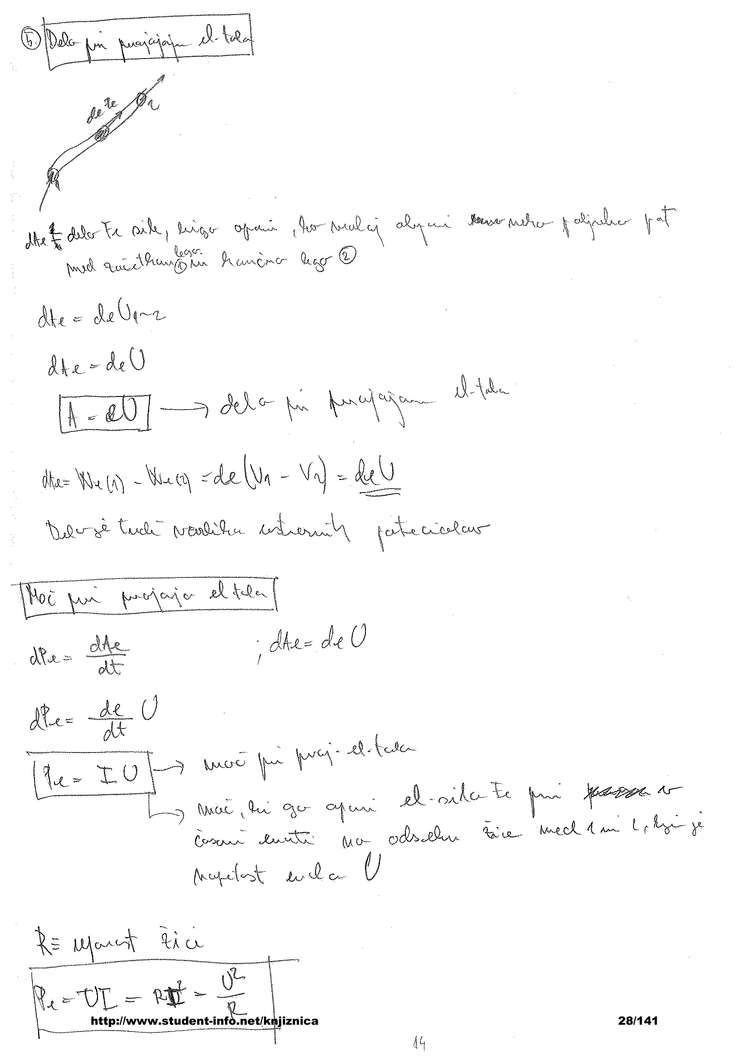 5. Delo pri prajajaju el. toka
de Fe
2
dAe delo Fe sile, ki ga opravi, ko naboj opravi neko poljubno pot
med začetkom lego 1 in končno lego 2
dAe = de U1-2
dAe = de U
A = eU → delo pri el. toka
dAe = We(1) - We(2) = de(V1 - V2) = de U
Delo je tudi razlika potencialov
Moč pri el toka
dPe = dAe/dt ; dAe = de U
dPe = de/dt U
Pe = I U → moč pri el. toka
→ moč, ki ga opravi el. sila Fe pri v
časovni enoti na odseku žice med 1 in 2, kjer je
napetost enaka U
R ≡ upornost žice
Pe = UI = RI² = U²/R
http://www.student-info.net/knjiznica 28/141
14